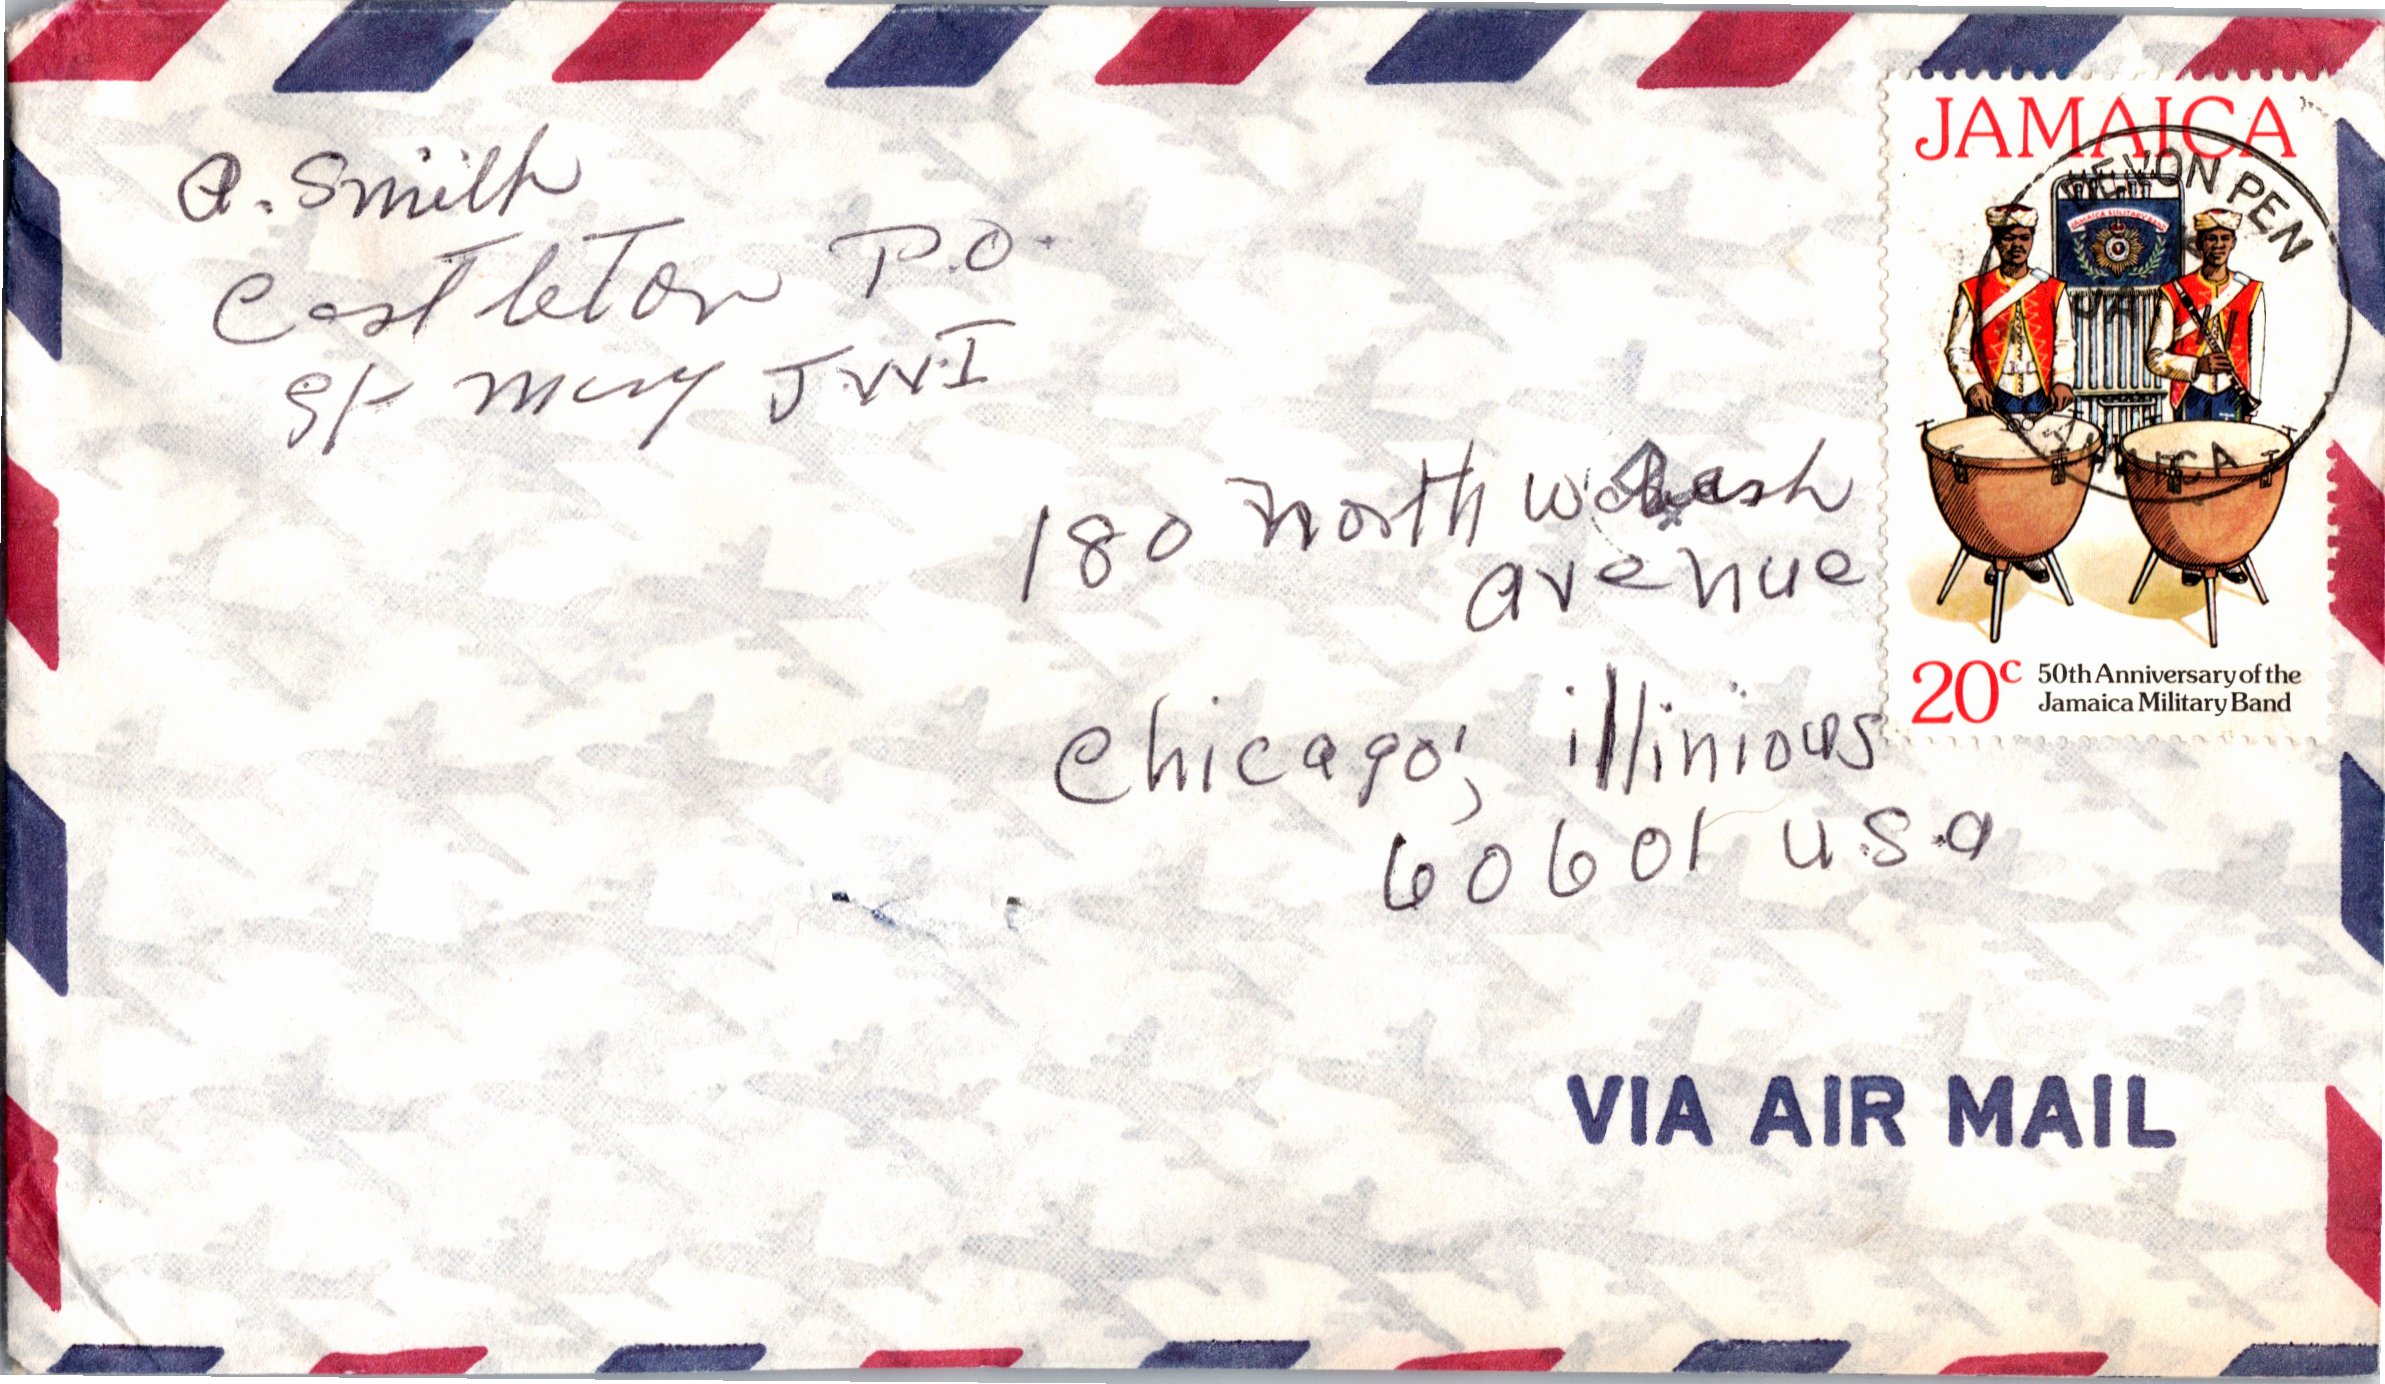 a. Smith
Castleton P.O.
St Mary J.W.I
180 North Wabash
avenue
Chicago, illinious
60601 U.S.a
VIA AIR MAIL
JAMAICA
JAMAICA MILITARY BAND
20c 50th Anniversary of the
Jamaica Military Band
DEVON PEN
JA
JAMAICA